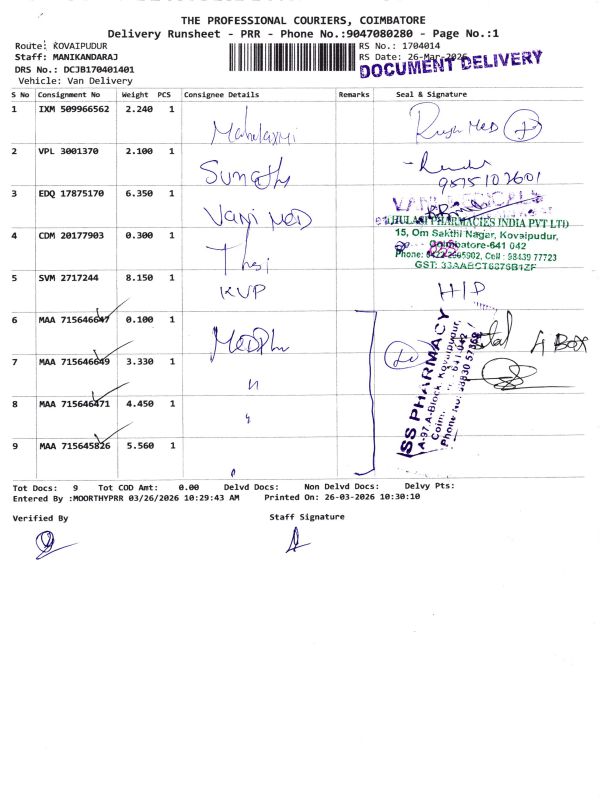 THE PROFESSIONAL COURIERS, COIMBATORE
Delivery Runsheet - PRR - Phone No.:9047080280 - Page No.:1
Route: KOVAIPUDUR
RS No.: 1704014
Staff: MANIKANDARAJ
RS Date: 26-Mar-2026
DRS No.: DCJB170401401
DOCUMENT DELIVERY
Vehicle: Van Delivery
S No Consignment No Weight PCS Consignee Details Remarks Seal & Signature
1 IXM 509966562 2.240 1 Mahalaxmi
2 VPL 3001370 2.100 1
9575102601
3 EDQ 17875170 6.350 1 Vani MED
PHARMACIES INDIA PVT LTD
4 CDM 20177903 0.300 1
15, Om Sakthi Nagar, Kovaipudur,
Coimbatore-641 042
Phone: Cell: 98439 77723
GST: 33AABCT6875B1ZF
5 SVM 2717244 8.150 1 KVP H/P
6 MAA 715646647 0.100 1
4 Box
7 MAA 715646649 3.330 1 "
SS PHARMACY
A-97, A-Block, Kovaipudur,
8 MAA 715646471 4.450 1 "
9 MAA 715645826 5.560 1 "
Tot Docs: 9 Tot COD Amt: 0.00 Delvd Docs: Non Delvd Docs: Delvy Pts:
Entered By :MOORTHYPRR 03/26/2026 10:29:43 AM Printed On: 26-03-2026 10:30:10
Verified By Staff Signature